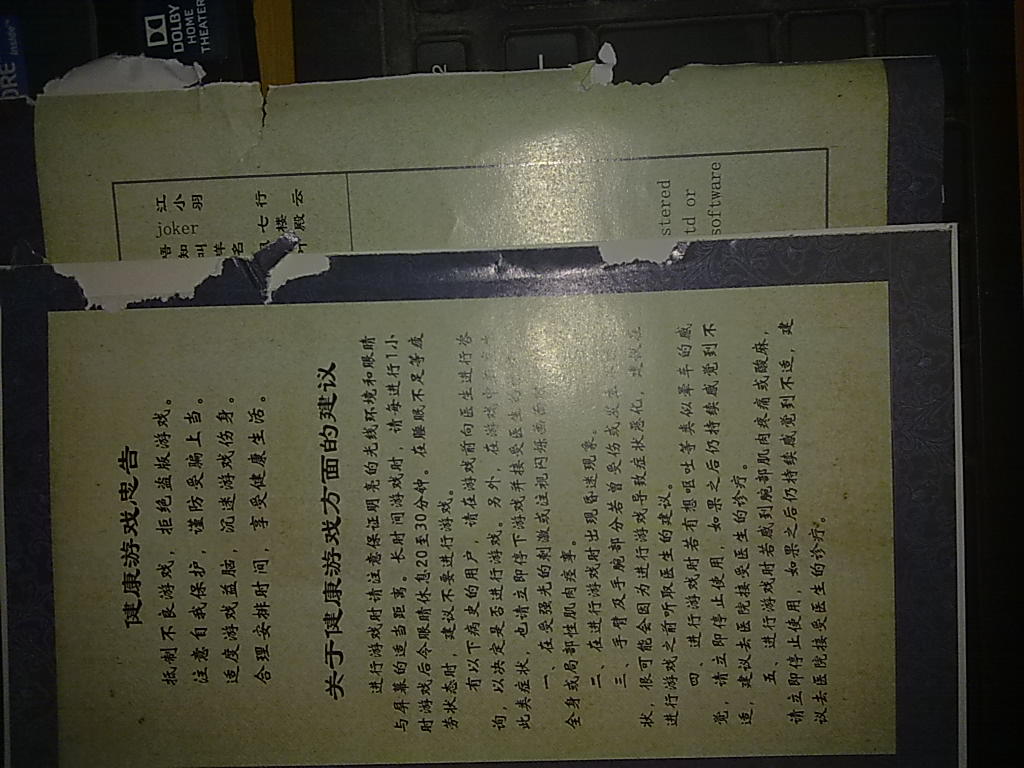 健康游戏忠告
抵制不良游戏，拒绝盗版游戏。
注意自我保护，谨防受骗上当。
适度游戏益脑，沉迷游戏伤身。
合理安排时间，享受健康生活。
关于健康游戏方面的建议
进行游戏时请注意保证明亮的光线环境和眼睛
与屏幕的适当距离。长时间游戏时，请每进行1小
时游戏后令眼睛休息20至30分钟。在睡眠不足等疲
劳状态时，建议不要进行游戏。
有以下病史的用户，请在游戏前向医生进行咨
询，以决定是否进行游戏。另外，在游戏中
此类症状，也请立即停下游戏并接受医生的
一、在受强光的刺激或注视闪烁画面时
全身或局部性肌肉痉挛。
二、在进行游戏时出现昏迷现象。
三、手臂及手腕部分若曾受伤或发生
状，很可能会因为进行游戏导致症状恶化，建议在
进行游戏之前听取医生的建议。
四、进行游戏时若有想呕吐等类似晕车的感
觉，请立即停止使用，如果之后仍持续感觉到不
适，建议去医院接受医生的诊疗。
五、进行游戏时若感到腕部肌肉疼痛或酸麻，
请立即停止使用，如果之后仍持续感觉到不适，建
议去医院接受医生的诊疗。
江小羽
Joker
七行
楼云
殿
知叫
名
stered
td or
software
DOLBY
HOME
THEATER
2